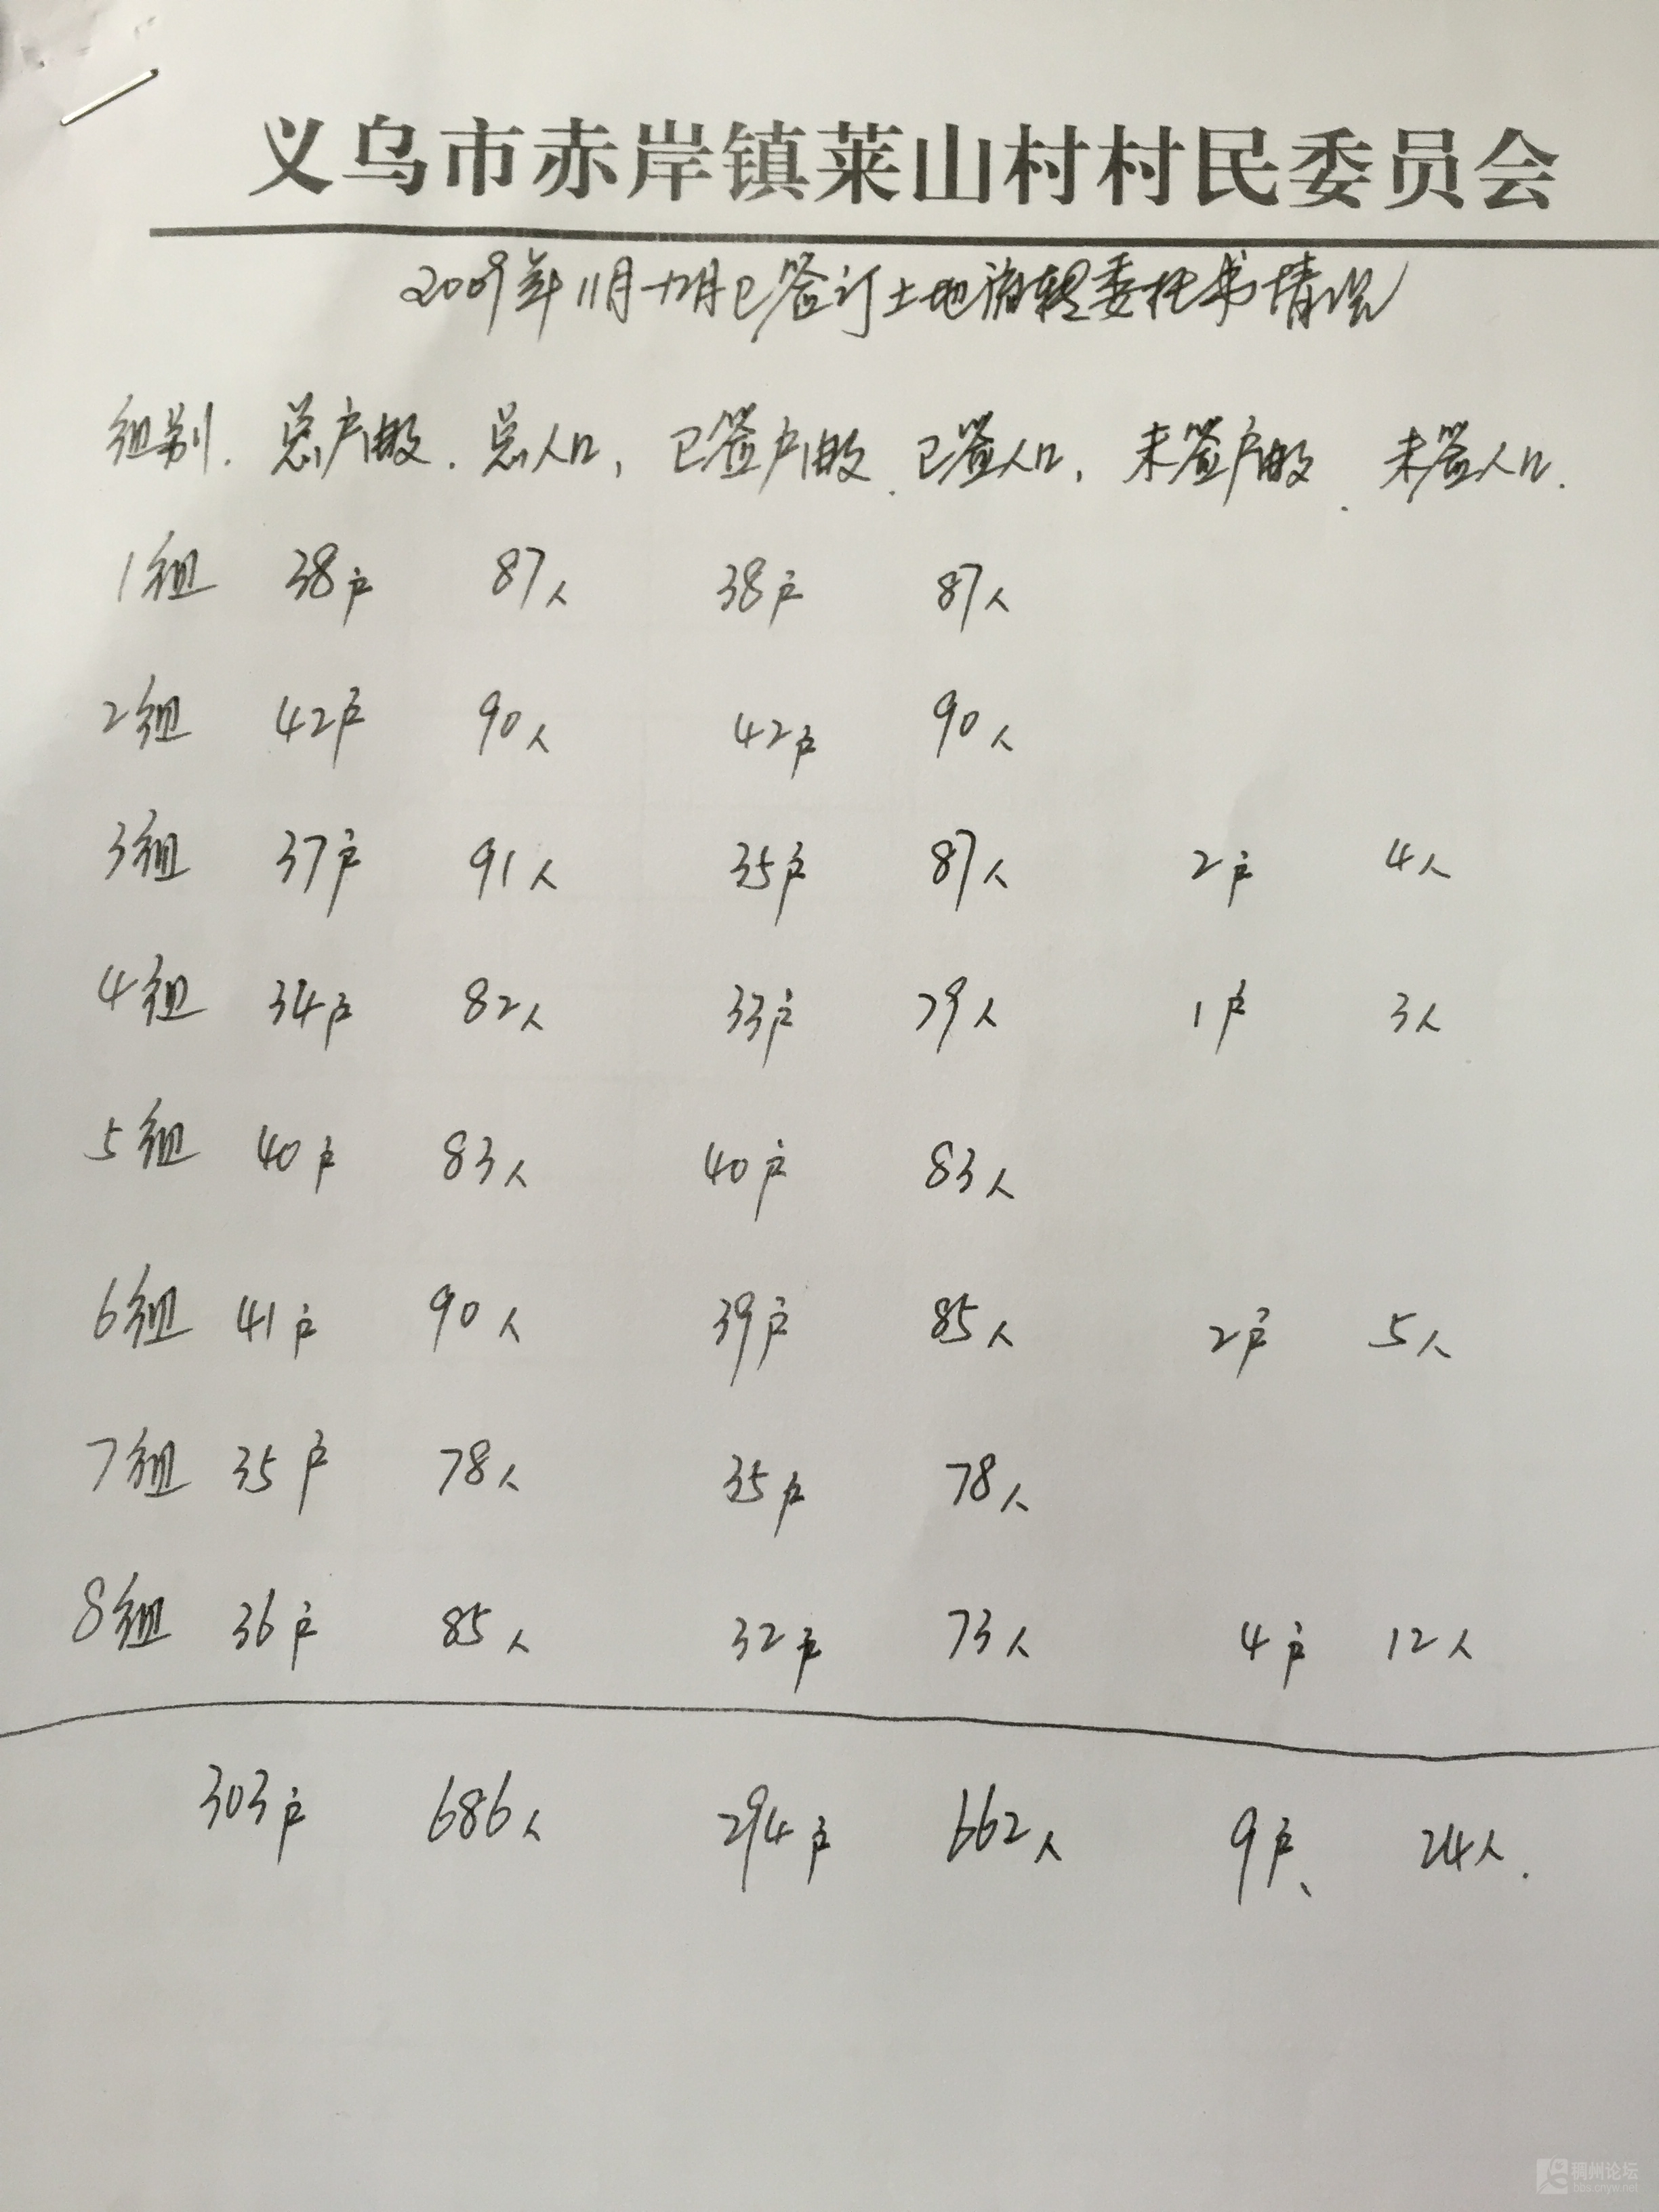 义乌市赤岸镇莱山村村民委员会
2009年11月-12月已签订土地流转委托书情况
组别. 总户数. 总人口, 已签户数. 已签人口, 未签户数. 未签人口.
1组 38户 87人 38户 87人
2组 42户 90人 42户 90人
3组 37户 91人 35户 87人 2户 4人
4组 34户 82人 33户 79人 1户 3人
5组 40户 83人 40户 83人
6组 41户 90人 39户 85人 2户 5人
7组 35户 78人 35户 78人
8组 36户 85人 32户 73人 4户 12人
303户 686人 294户 662人 9户、 24人.
稠州论坛
bbs.cnyw.net